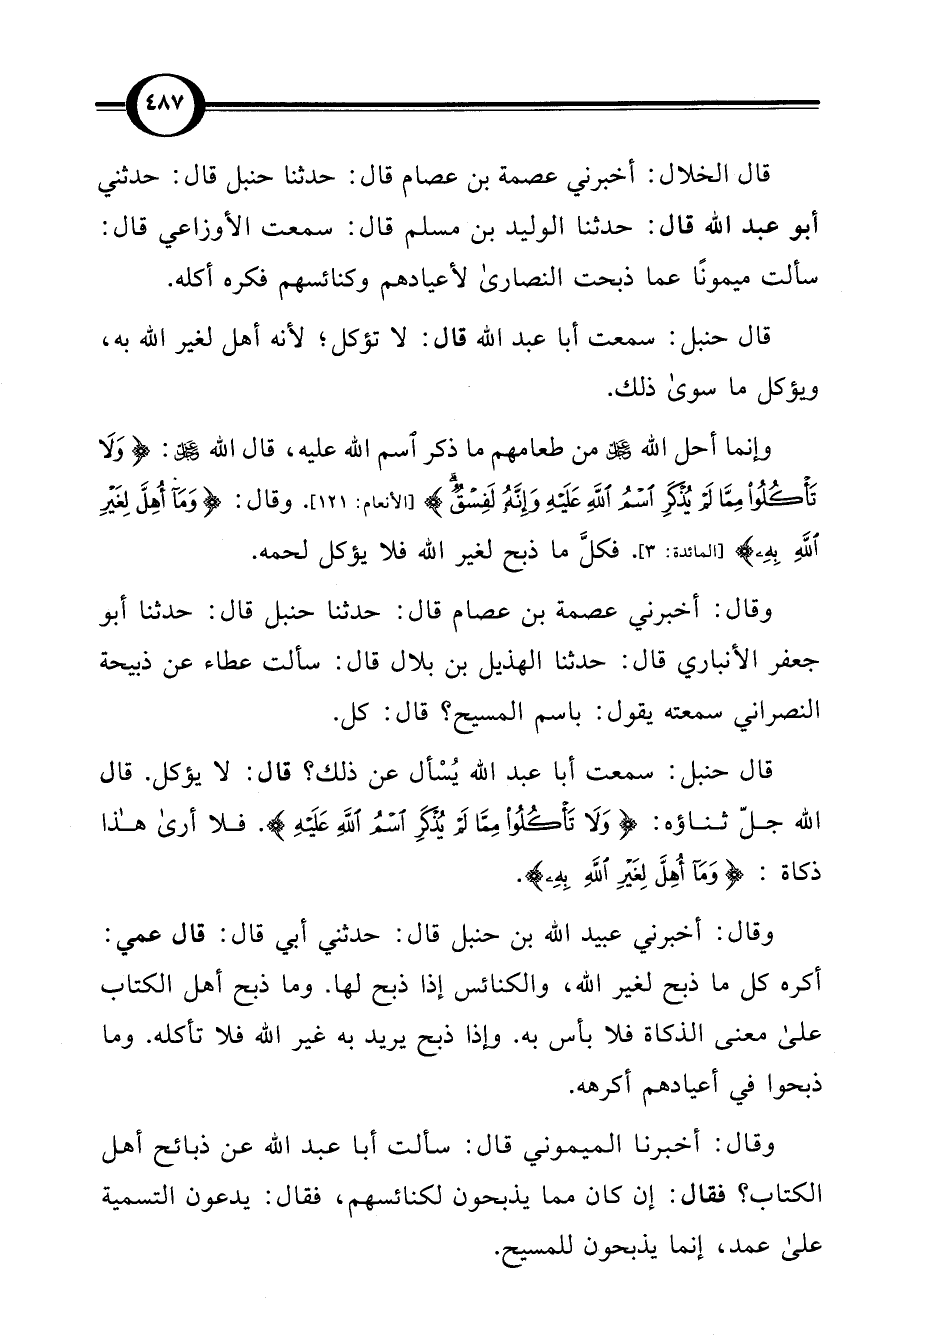 ٤٨٧
قال الخلال: أخبرني عصمة بن عصام قال: حدثنا حنبل قال: حدثني
أبو عبد الله قال: حدثنا الوليد بن مسلم قال: سمعت الأوزاعي قال:
سألت ميمونًا عما ذبحت النصارىٰ لأعيادهم وكنائسهم فكره أكله.
قال حنبل: سمعت أبا عبد الله قال: لا تؤكل؛ لأنه أهل لغير الله به،
ويؤكل ما سوىٰ ذلك.
وإنما أحل الله من طعامهم ما ذكر ٱسم الله عليه، قال الله : ﴿وَلَا
تَأْكُلُوا۟ مِمَّا لَمْ يُذْكَرِ ٱسْمُ ٱللَّهِ عَلَيْهِ وَإِنَّهُۥ لَفِسْقٌ ۗ﴾ [الأنعام: ١٢١]. وقال: ﴿وَمَآ أُهِلَّ لِغَيْرِ
ٱللَّهِ بِهِۦ﴾ [المائدة: ٣]. فكلَّ ما ذبح لغير الله فلا يؤكل لحمه.
وقال: أخبرني عصمة بن عصام قال: حدثنا حنبل قال: حدثنا أبو
جعفر الأنباري قال: حدثنا الهذيل بن بلال قال: سألت عطاء عن ذبيحة
النصراني سمعته يقول: باسم المسيح؟ قال: كل.
قال حنبل: سمعت أبا عبد الله يُسْأل عن ذلك؟ قال: لا يؤكل. قال
الله جلّ ثناؤه: ﴿وَلَا تَأْكُلُوا۟ مِمَّا لَمْ يُذْكَرِ ٱسْمُ ٱللَّهِ عَلَيْهِ﴾. فلا أرىٰ هـٰذا
ذكاة : ﴿وَمَآ أُهِلَّ لِغَيْرِ ٱللَّهِ بِهِۦ﴾.
وقال: أخبرني عبيد الله بن حنبل قال: حدثني أبي قال: قال عمي:
أكره كل ما ذبح لغير الله، والكنائس إذا ذبح لها. وما ذبح أهل الكتاب
علىٰ معنى الذكاة فلا بأس به. وإذا ذبح يريد به غير الله فلا تأكله. وما
ذبحوا في أعيادهم أكرهه.
وقال: أخبرنا الميموني قال: سألت أبا عبد الله عن ذبائح أهل
الكتاب؟ فقال: إن كان مما يذبحون لكنائسهم، فقال: يدعون التسمية
علىٰ عمد، إنما يذبحون للمسيح.